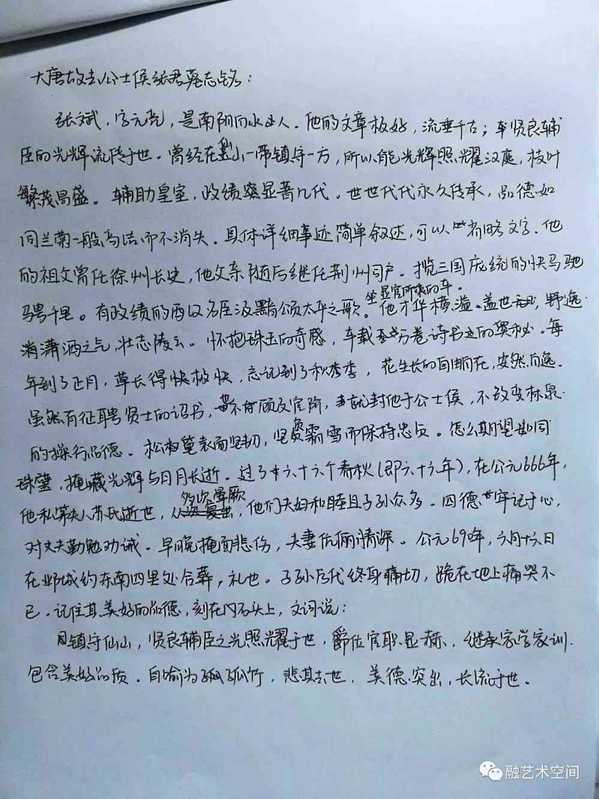 大唐故去公士侯张君墓志铭:
张斌,字元亮,是南阴向水人。他的文章极好,流垂千古;车贤良辅
臣的光辉流传于世。曾经在小一带镇守一方,所以能光辉照耀汉庭,枝叶
繁茂昌盛。辅助皇室,政绩突显普几代。世世代代永久传承,品德如
同兰菊一般高洁而不消失。具体详细事迹简单叙述,可以省略文字。他
的祖父曾任徐州长史,他父亲随后继任荆州司户。揽三国庞统的快马驰
骋千里。有政绩的西汉名臣汲黯颂太平之歌。坐显官所乘的车。他才华横溢盖世,野逸
潇洒之气,壮志陵云。怀抱珠玉的奇感,车载万卷诗书的奥秘。每
年到了正月,草长得快极快,忘记到了秋季,花生长的自由自在,安然而逸。
虽然有征聘贤士的诏书,不顾及官阶,就封他于公士侯,不改变林泉
的操行品德。松表面坚韧,坚霜雪而保持忠贞。怎么期望如同
珠莹,掩藏光辉与日月长逝。过了六十六个春秋(即六十六年),在公元666年,
他和第夫人苏氏逝世,他们夫妇和睦且子孙众多。四德牢记于心,
对丈夫勤勉劝诫。早晚掩面悲伤,夫妻伉俪情深。公元69年,六月十六日
在邺城约东南四里处合葬,礼也。子孙后代终身痛切,跪在地上痛哭不
已。记住其美好的品德,刻在内石头上,文词说:
镇守仙山,贤良辅臣之光照耀于世,爵位官职显标,继承家学家训,
包含美好品质。自喻为孤竹,悲其去世,美德突出,长流于世。
融艺术空间